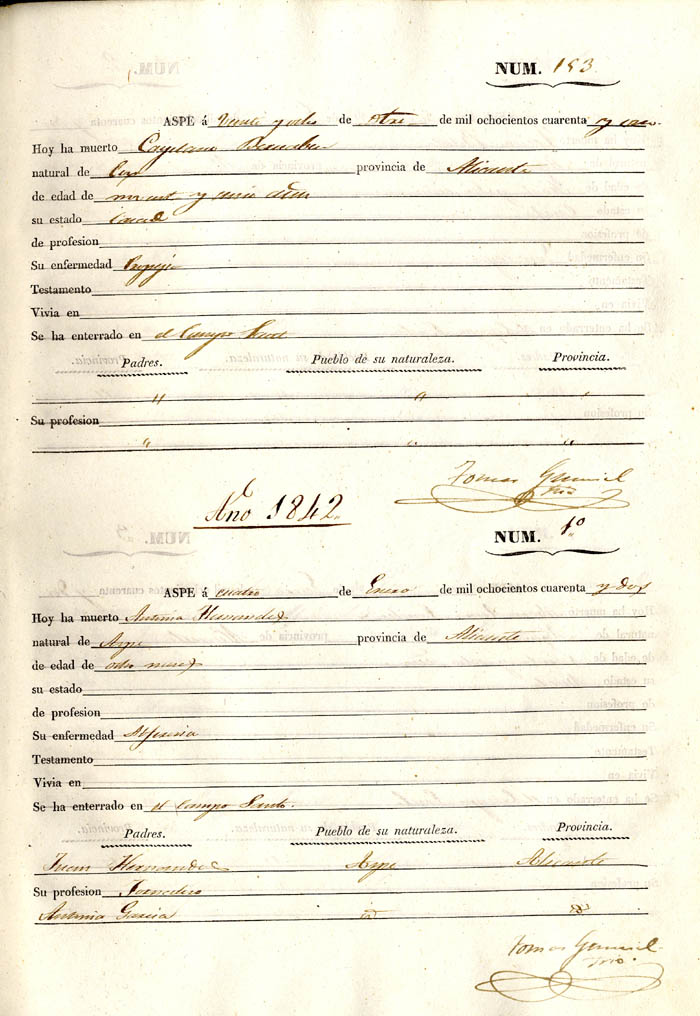 NUM. 193
ASPE á Veinte y ocho de de mil ochocientos cuarenta y uno
Hoy ha muerto Cayetano
natural de provincia de Alicante
de edad de y años
su estado
de profesion
Su enfermedad
Testamento
Vivia en
Se ha enterrado en el Campo Santo
Padres. Pueblo de su naturaleza. Provincia.
" " "
Su profesion
" " "
Tomas
Año 1842.
NUM. 1º
ASPE á cuatro de Enero de mil ochocientos cuarenta y dos
Hoy ha muerto Antonia Hernandez
natural de Aspe provincia de Alicante
de edad de ocho meses
su estado
de profesion
Su enfermedad Alferecia
Testamento
Vivia en
Se ha enterrado en el campo Santo.
Padres. Pueblo de su naturaleza. Provincia.
Juan Hernandez Aspe Alicante
Su profesion Jornalero
Antonia Garcia id id
Tomas